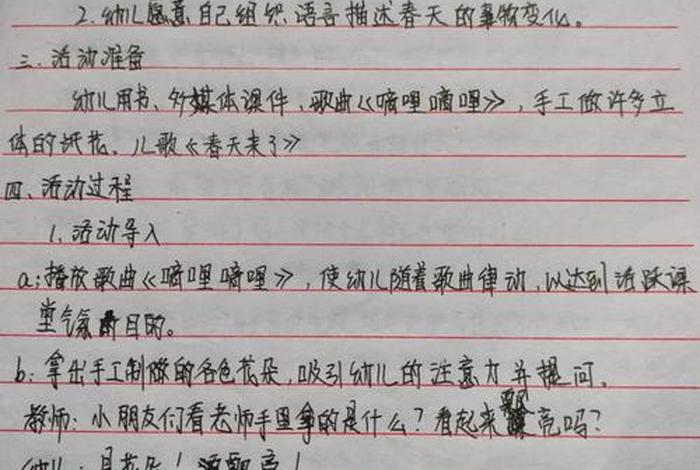 2. 幼儿愿意自己组织语言描述春天的事物变化。
三、活动准备
幼儿用书、多媒体课件、歌曲《嘀哩嘀哩》，手工做许多立
体的纸花、儿歌《春天来了》
四、活动过程
1. 活动导入
a：播放歌曲《嘀哩嘀哩》，使幼儿随着歌曲律动，以达到活跃课
堂气氛的目的。
b：拿出手工制做的各色花朵，吸引幼儿的注意力并提问。
教师：小朋友们看老师手里拿的是什么？看起来漂亮吗？
幼儿：是花朵！漂亮！